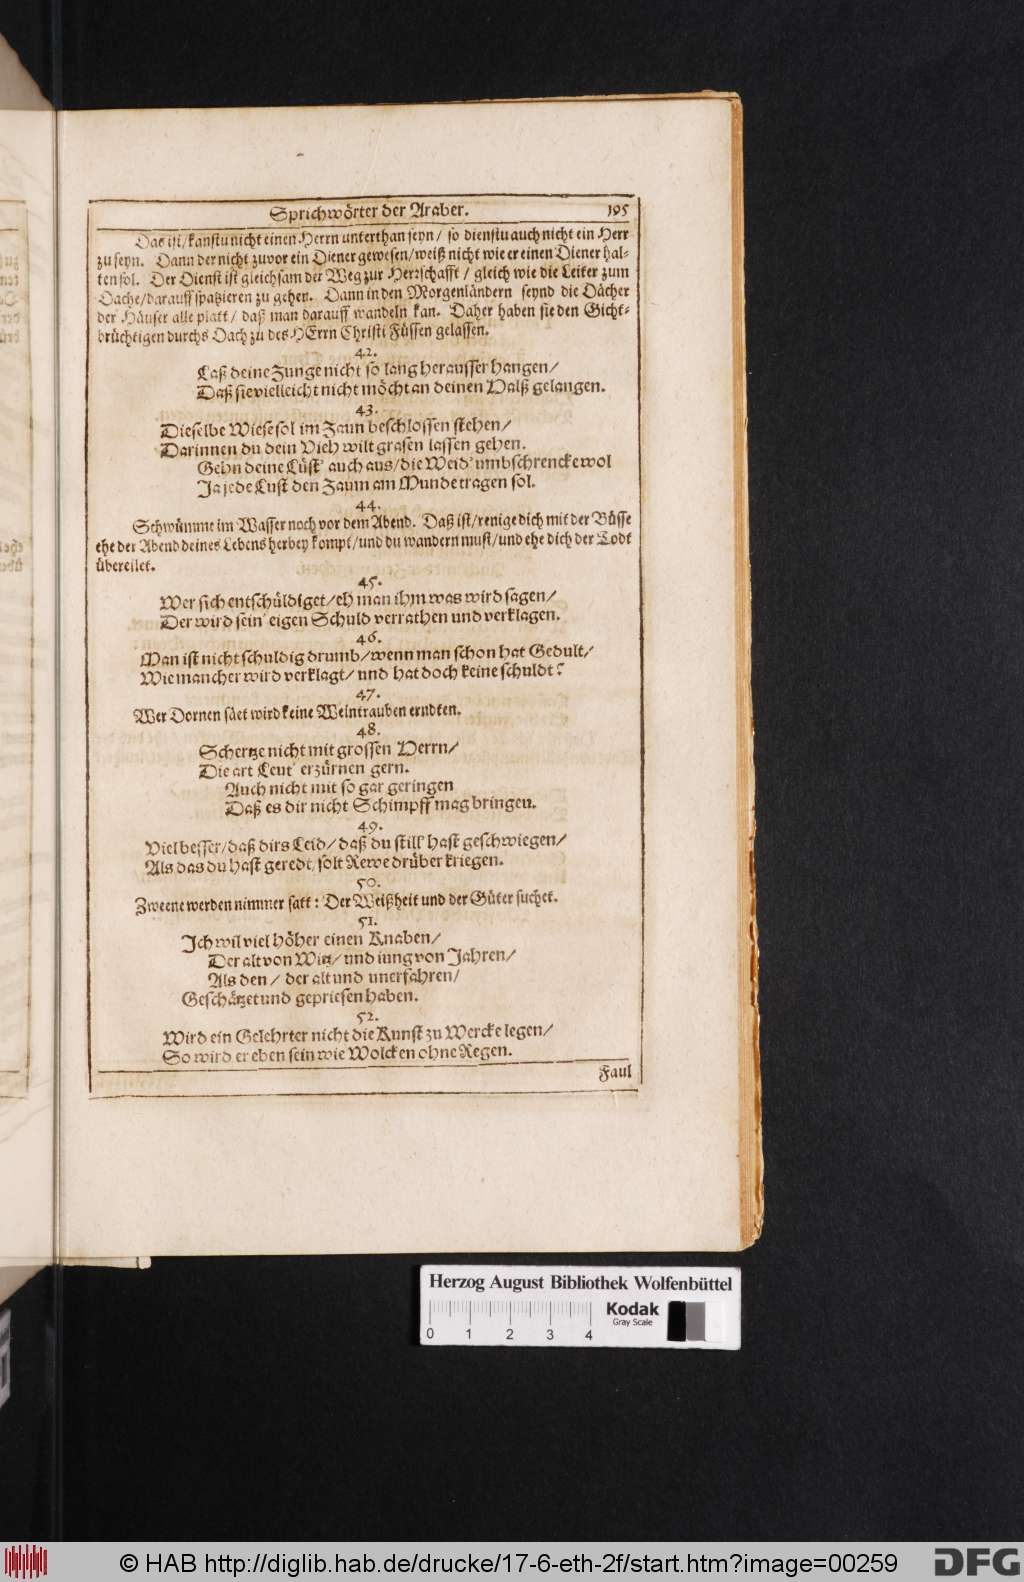 Sprichwörter der Araber. 195
Das ist/ kanstu nicht einen Herrn unterthan seyn/ so dienstu auch nicht ein Herr
zu seyn. Dann der nicht zuvor ein Diener gewesen/ weiß nicht wie er einen Diener hal-
ten sol. Der Dienst ist gleichsam der Weg zur Herrschafft/ gleich wie die Leiter zum
Dache/ darauff spatzieren zu gehen. Dann in den Morgenländern seynd die Dächer
der Häuser alle platt/ daß man darauff wandeln kan. Daher haben sie den Gicht-
brüchtigen durchs Dach zu des HErrn Christi Füssen gelassen.
42.
Laß deine Zunge nicht so lang herausser hangen/
Daß sie vielleicht nicht möcht an deinen Halß gelangen.
43.
Dieselbe Wiese sol im Zaun beschlossen stehen/
Darinnen du dein Vieh wilt grasen lassen gehen.
Gehn deine Lüst' auch aus/ die Weid' umbschrencke wol
Ja jede Lust den Zaum am Munde tragen sol.
44.
Schwümme im Wasser noch vor dem Abend. Daß ist/ renige dich mit der Büsse
ehe der Abend deines Lebens herbey kompt/ und du wandern must/ und ehe dich der Todt
übereilet.
45.
Wer sich entschüldiget/ eh man ihm was wird sagen/
Der wird sein' eigen Schuld verrathen und verklagen.
46.
Man ist nicht schuldig drumb/ wenn man schon hat Gedult/
Wie mancher wird verklagt/ und hat doch keine schuldt?
47.
Wer Dornen säet wird keine Weintrauben erndten.
48.
Schertze nicht mit grossen Herrn/
Die art Leut' erzürnen gern.
Auch nicht mit so gar geringen
Daß es dir nicht Schimpff mag bringen.
49.
Viel besser/ daß dirs Leid/ daß du still' hast geschwiegen/
Als das du hast geredt/ solt Rewe drüber kriegen.
50.
Zweene werden nimmer satt: Der Weißheit und der Güter suchet.
51.
Ich wil viel höher einen Knaben/
Der alt von Witz/ und iung von Jahren/
Als den/ der alt und unerfahren/
Geschätzet und gepriesen haben.
52.
Wird ein Gelehrter nicht die Kunst zu Wercke legen/
So wird er eben sein wie Wolcken ohne Regen.
Faul
Herzog August Bibliothek Wolfenbüttel
Kodak
Gray Scale
0 1 2 3 4
© HAB http://diglib.hab.de/drucke/17-6-eth-2f/start.htm?image=00259
DFG